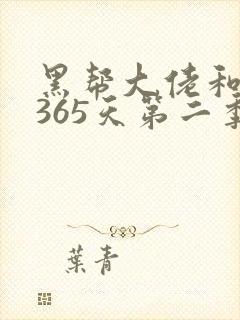 黑帮大佬和
365天第二季
葉青